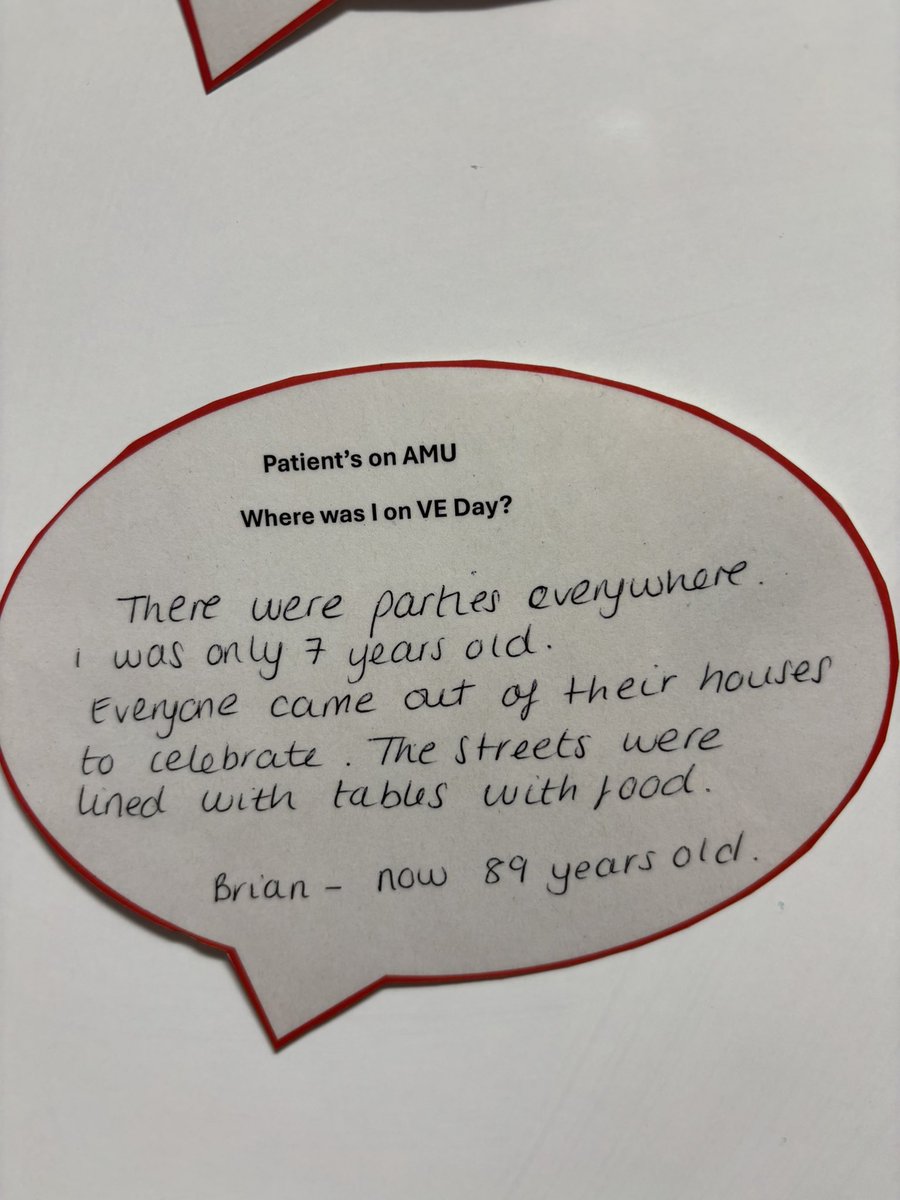 Patient's on AMU
Where was I on VE Day?
There were parties everywhere.
i was only 7 years old.
Everyone came out of their houses
to celebrate. The streets were
lined with tables with food.
Brian - now 89 years old.